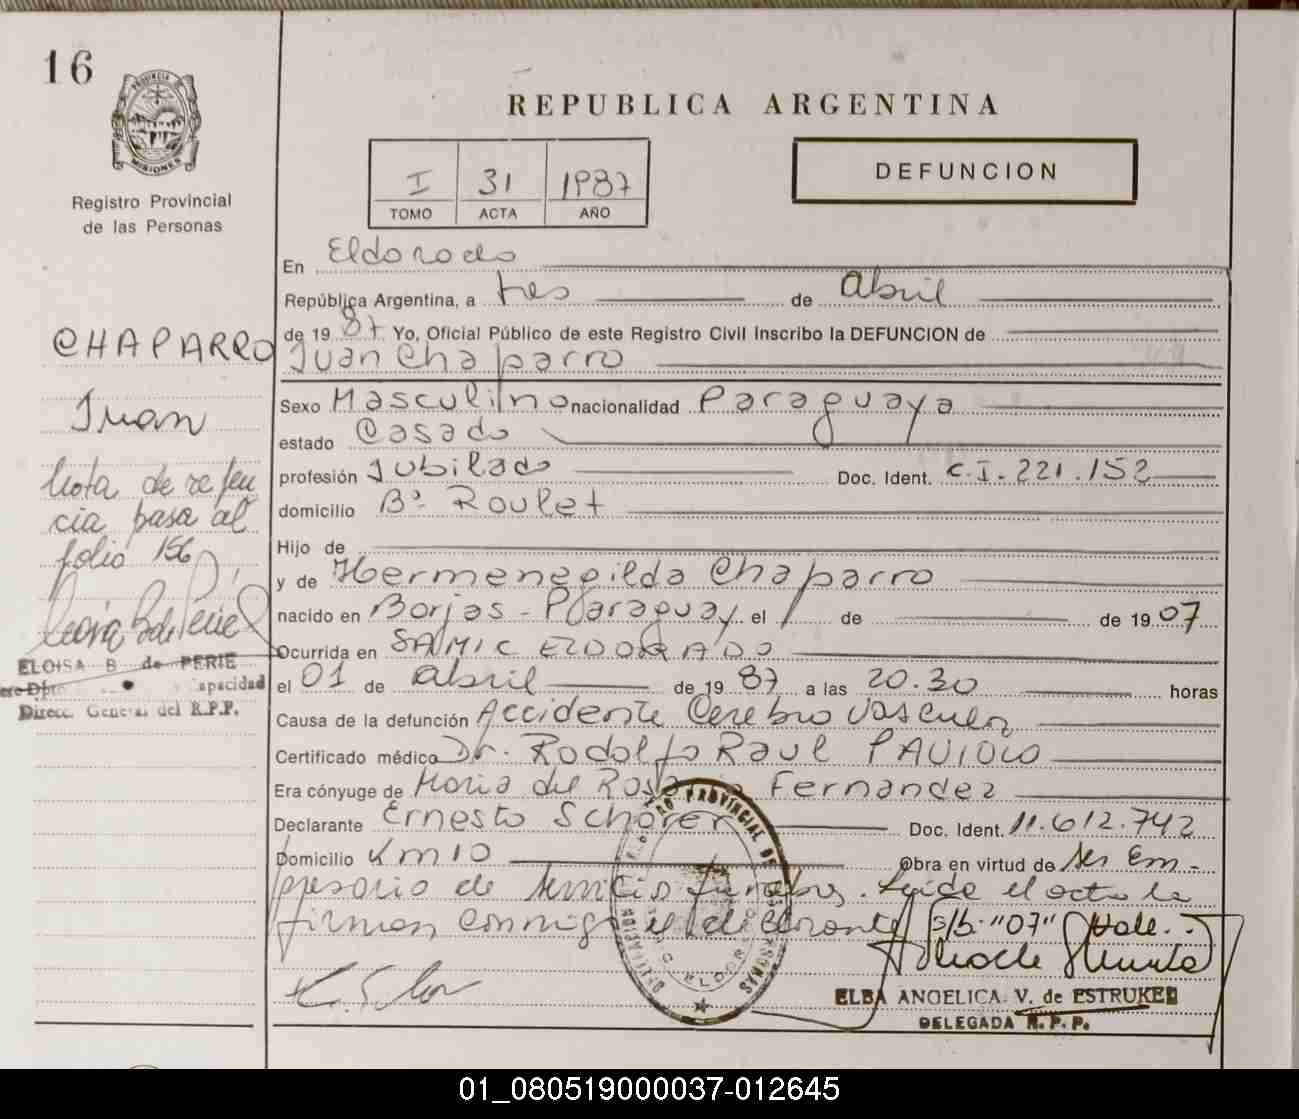 16
PROVINCIA DE
MISIONES
Registro Provincial
de las Personas
REPUBLICA ARGENTINA
I 31 1987
TOMO ACTA AÑO
DEFUNCION
En Eldorado
República Argentina, a tres de Abril
de 1987 Yo, Oficial Público de este Registro Civil Inscribo la DEFUNCION de
Juan Chaparro
CHAPARRO
Juan
Sexo Masculino nacionalidad Paraguaya
estado Casado
profesión Jubilado Doc. Ident. C.I. 221.152
domicilio Bº Roulet
Hijo de
y de Hermenegilda Chaparro
nacido en Borjas - Paraguay el / de de 1907
Ocurrida en SAMIC ELDORADO
el 01 de abril de 1987 a las 20.30 horas
Causa de la defunción Accidente Cerebro Vascular
Certificado médico Dr. Rodolfo Raul PAVIOLO
Era cónyuge de Maria del Rosario Fernandez
Declarante Ernesto Schorer Doc. Ident. 11.612.742
Domicilio Km 10 Obra en virtud de ser Em-
presario de servicios funebres. Leida el acta la
firman conmigo el declarante s/b. "07" Vale.-
Nota de refen
cia pasa al
folio 156
ELOISA B de PERIE
Capacidad
Direcc. General del R.P.P.
REGISTRO PROVINCIAL DE LAS PERSONAS
DELEGACION
ELDORADO
ELBA ANGELICA V. de ESTRUKEL
DELEGADA R. P. P.
01_080519000037-012645